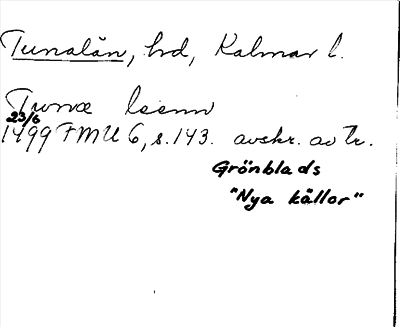 Tunalän, hd, Kalmar l.
Tunæ leenn
23/6
1499 FMU 6, s. 143. avskr. av tr.
Grönblads
"Nya källor"